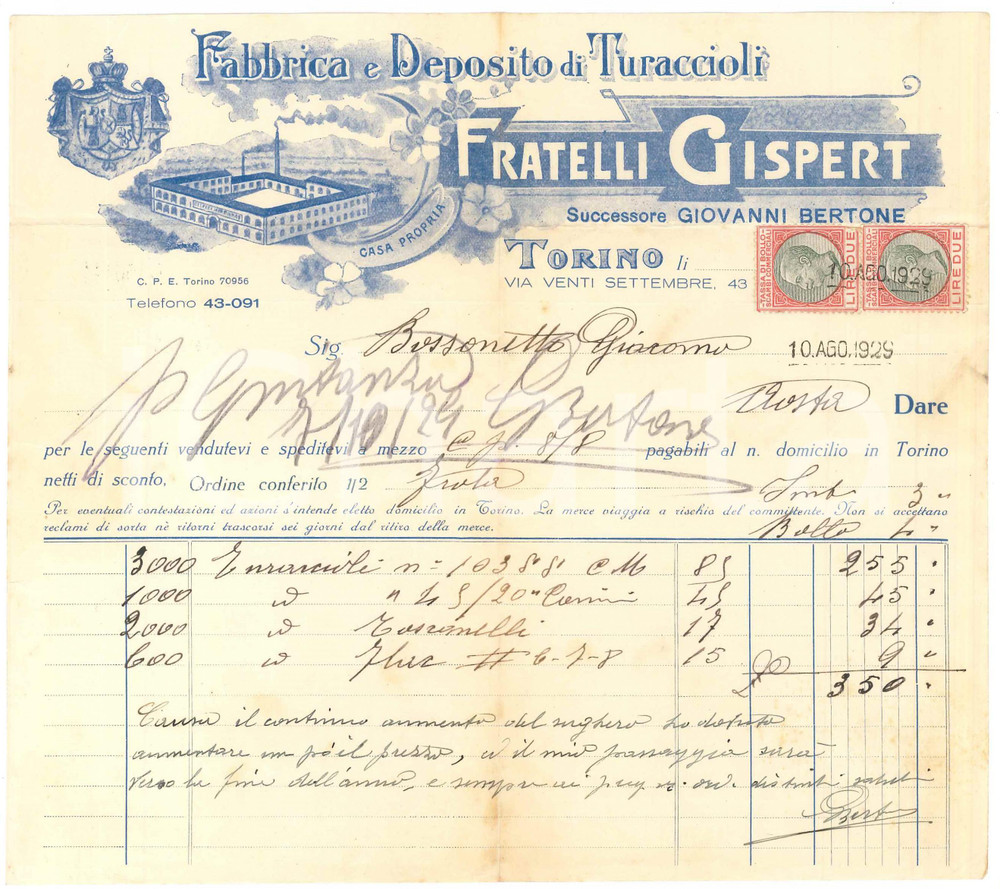 Fabbrica e Deposito di Turaccioli
FRATELLI GISPERT
Successore GIOVANNI BERTONE
CASA PROPRIA
TORINO li
VIA VENTI SETTEMBRE, 43
C. P. E. Torino 70956
Telefono 43-091
TASSA DI BOLLO SCAMBI COMMERCIALI LIRE DUE
TASSA DI BOLLO SCAMBI COMMERCIALI LIRE DUE
10.AGO.1929
Sig. Bossonetto Giacomo
10.AGO.1929
Aosta Dare
p Quietanza
7/10/29 GBertone
per le seguenti vendutevi e speditevi a mezzo 8/8 pagabili al n. domicilio in Torino
netti di sconto, Ordine conferito 1/2
Imb 3 "
Per eventuali contestazioni ed azioni s'intende eletto domicilio in Torino. La merce viaggia a rischio del committente. Non si accettano
reclami di sorta nè ritorni trascorsi sei giorni dal ritiro della merce.
Bollo 4 "
3000 Turaccioli n= 10388 CM 85 255 "
1000 id " 45/20 45 45 "
2000 id Toscanelli 17 34 "
600 id # 6-7-8 15 9 "
350 "
Causa il continuo aumento del sughero ho dovuto
aumentare un po' il prezzo, ed il mio passaggio sarà
verso la fine dell'anno, e sempre ai distinti saluti
GBert